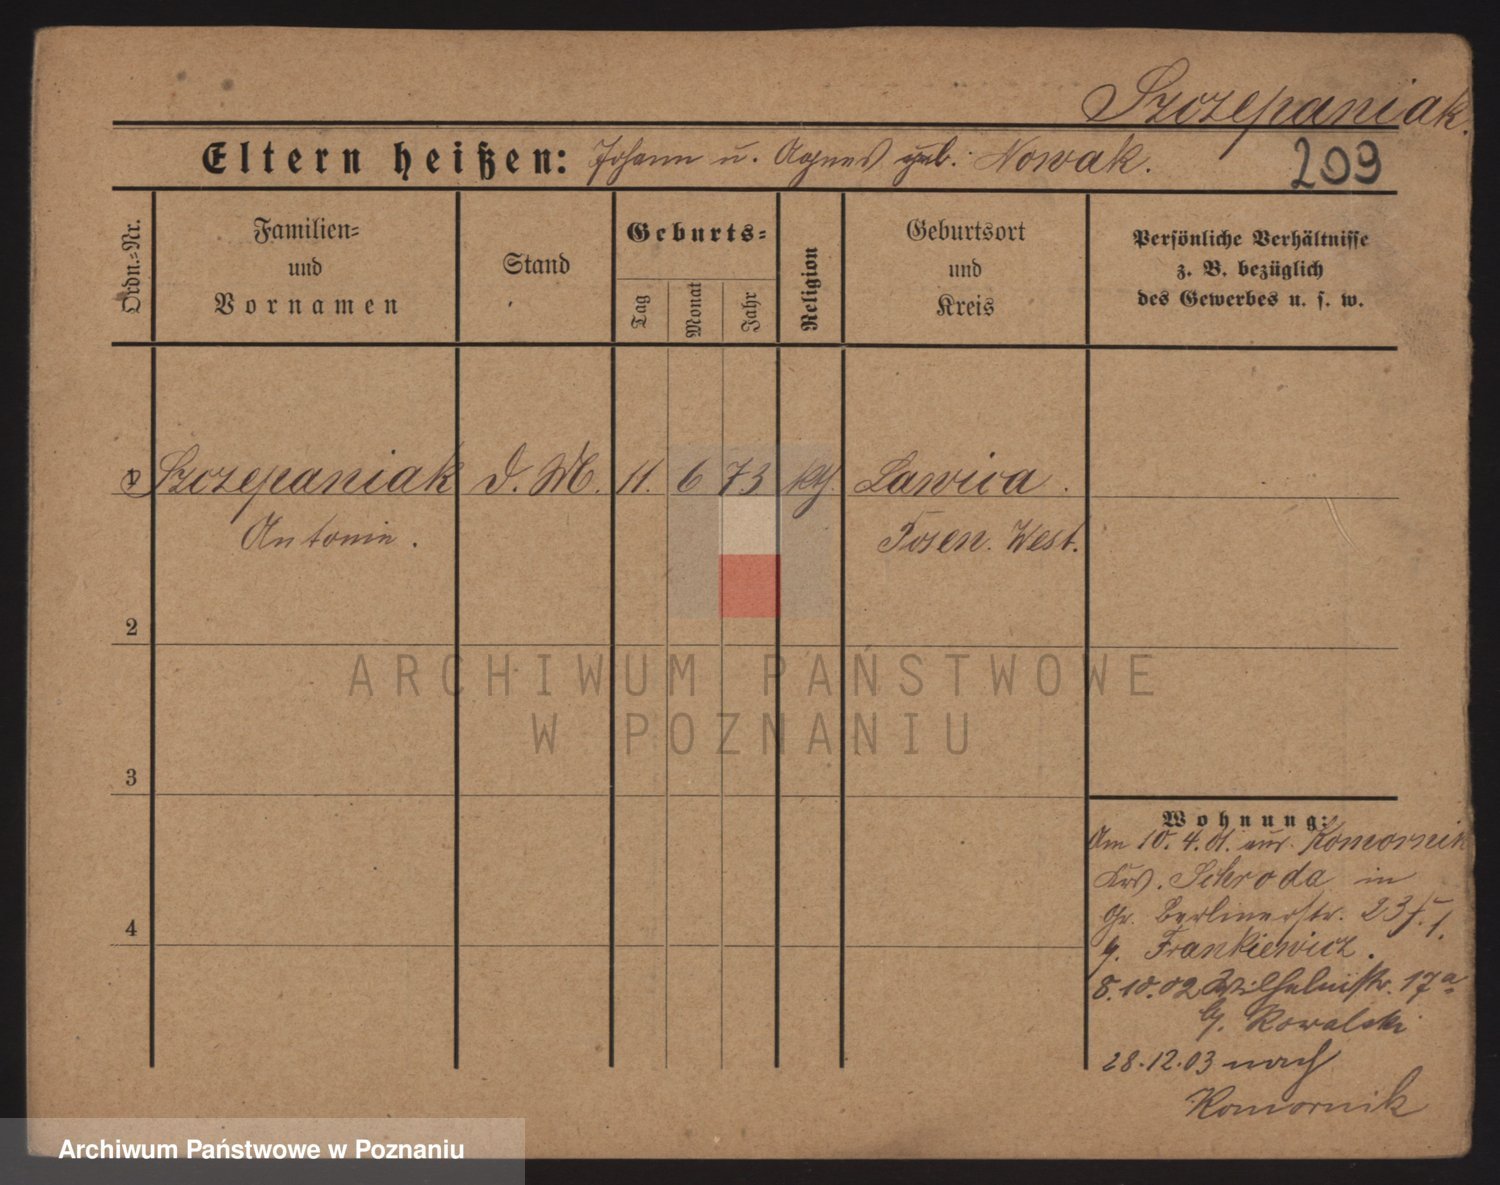 Szczepaniak.
Eltern heißen: Johann u. Agnes geb. Nowak.
209
Ordn.-Nr.
Familien-
und
Vornamen
Stand
Geburts-
Tag
Monat
Jahr
Religion
Geburtsort
und
Kreis
Persönliche Verhältnisse
z. B. bezüglich
des Gewerbes u. s. w.
Szczepaniak D. M. 11. 6 73 kth. Lawica.
Antonie. Posen. West.
2
3
4
ARCHIWUM PAŃSTWOWE
W POZNANIU
Wohnung:
Am 10. 4. 01. aus Komornik
Krs. Schroda in
Gr. Berlinerstr. 23
b. Frankiewicz.
8.10.02 Wilhelmstr. 17a
b. Kowalski
28.12.03 nach
Komornik
Archiwum Państwowe w Poznaniu